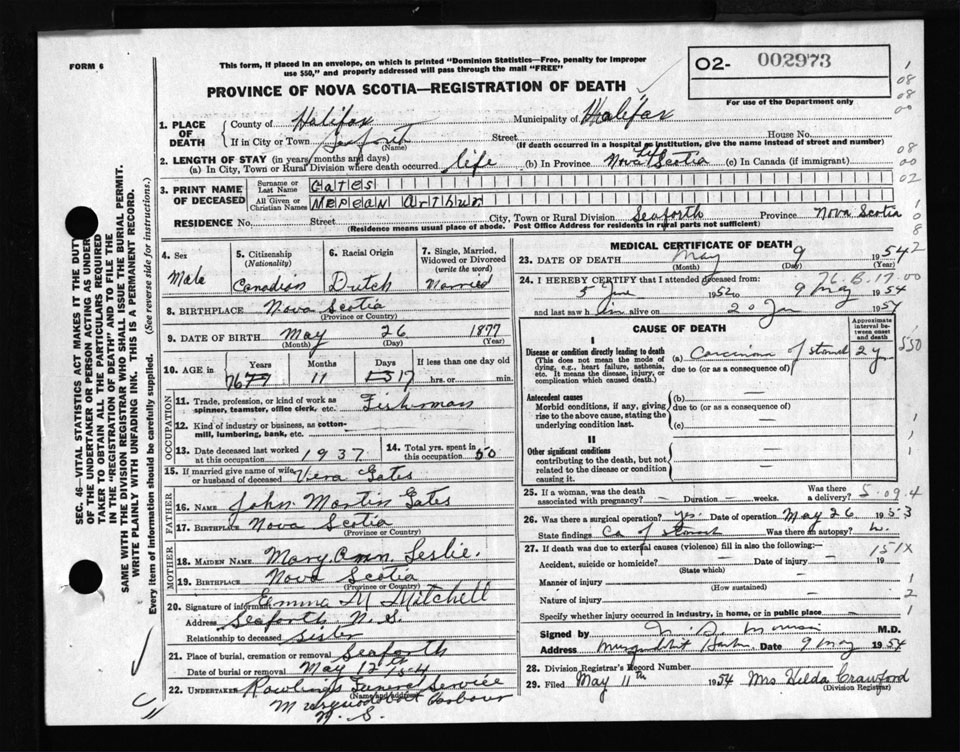 FORM 6
This form, if placed in an envelope, on which is printed "Dominion Statistics—Free, penalty for improper
use $50," and properly addressed will pass through the mail "FREE"
PROVINCE OF NOVA SCOTIA—REGISTRATION OF DEATH
O2- 002973
For use of the Department only
1. PLACE OF DEATH
County of Halifax Municipality of Halifax
If in City or Town Seaforth Street House No.
(Name) (If death occurred in a hospital or institution, give the name instead of street and number)
2. LENGTH OF STAY (in years months and days)
(a) In City, Town or Rural Division where death occurred life (b) In Province Nova Scotia (c) In Canada (if immigrant)
3. PRINT NAME OF DECEASED
Surname or Last Name Gates
All Given or Christian Names Arthur
RESIDENCE No. Street City, Town or Rural Division Seaforth Province Nova Scotia
(Residence means usual place of abode. Post Office Address for residents in rural parts not sufficient)
4. Sex Male
5. Citizenship (Nationality) Canadian
6. Racial Origin Dutch
7. Single, Married, Widowed or Divorced (write the word) Married
8. BIRTHPLACE Nova Scotia
(Province or Country)
9. DATE OF BIRTH May 26 1877
(Month) (Day) (Year)
10. AGE in Years 76 Months 11 Days 17 If less than one day old hrs. or min.
OCCUPATION
11. Trade, profession, or kind of work as spinner, teamster, office clerk, etc. Fisherman
12. Kind of industry or business, as cotton-mill, lumbering, bank, etc.
13. Date deceased last worked at this occupation 1937
14. Total yrs. spent in this occupation 50
15. If married give name of wife or husband of deceased Vera Gates
FATHER
16. Name John Martin Gates
17. Birthplace Nova Scotia
(Province or Country)
MOTHER
18. MAIDEN NAME Mary Ann Leslie.
19. BIRTHPLACE Nova Scotia
(Province or Country)
20. Signature of informant Emma M Mitchell
Address Seaforth N. S.
Relationship to deceased Sister
21. Place of burial, cremation or removal Seaforth
Date of burial or removal May 12th /54
22. UNDERTAKER Rowlings Funeral Service
(Name and address)
Musquodoboit Harbour
N. S.
MEDICAL CERTIFICATE OF DEATH
23. DATE OF DEATH May 9 1954
(Month) (Day) (Year)
24. I HEREBY CERTIFY that I attended deceased from:
5 June 1952 to 9 May 1954
and last saw him alive on 20 1954
CAUSE OF DEATH
Approximate interval between onset and death
I
Disease or condition directly leading to death
(This does not mean the mode of dying, e.g., heart failure, asthenia, etc. It means the disease, injury, or complication which caused death.)
(a) Carcinoma of stomach 2 y
due to (or as a consequence of)
Antecedent causes
Morbid conditions, if any, giving rise to the above cause, stating the underlying condition last.
(b) —
due to (or as a consequence of)
(c) —
II
Other significant conditions
contributing to the death, but not related to the disease or condition causing it.
25. If a woman, was the death associated with pregnancy? — Duration — weeks. Was there a delivery?
26. Was there surgical operation? yes. Date of operation May 26 1953
State findings Ca of Stomach Was there an autopsy?
27. If death was due to external causes (violence) fill in also the following:—
Accident, suicide or homicide? — Date of injury — 19
(State which)
Manner of injury
(How sustained)
Nature of injury
Specify whether injury occurred in industry, in home, or in public place
Signed by M.D.
Address Musquodoboit Harbour Date 9 May 1954
28. Division Registrar's Record Number
29. Filed May 11th 1954 Mrs Hilda Crawford
(Division Registrar)
SEC. 46—VITAL STATISTICS ACT MAKES IT THE DUTY
OF THE UNDERTAKER OR PERSON ACTING AS UNDERTAKER
TO OBTAIN ALL THE PARTICULARS REQUIRED
IN THE "REGISTRATION OF DEATH" AND TO FILE THE
SAME WITH THE DIVISION REGISTRAR WHO SHALL ISSUE THE BURIAL PERMIT.
WRITE PLAINLY WITH UNFADING INK. THIS IS A PERMANENT RECORD.
Every item of information should be carefully supplied. (See reverse side for instructions.)